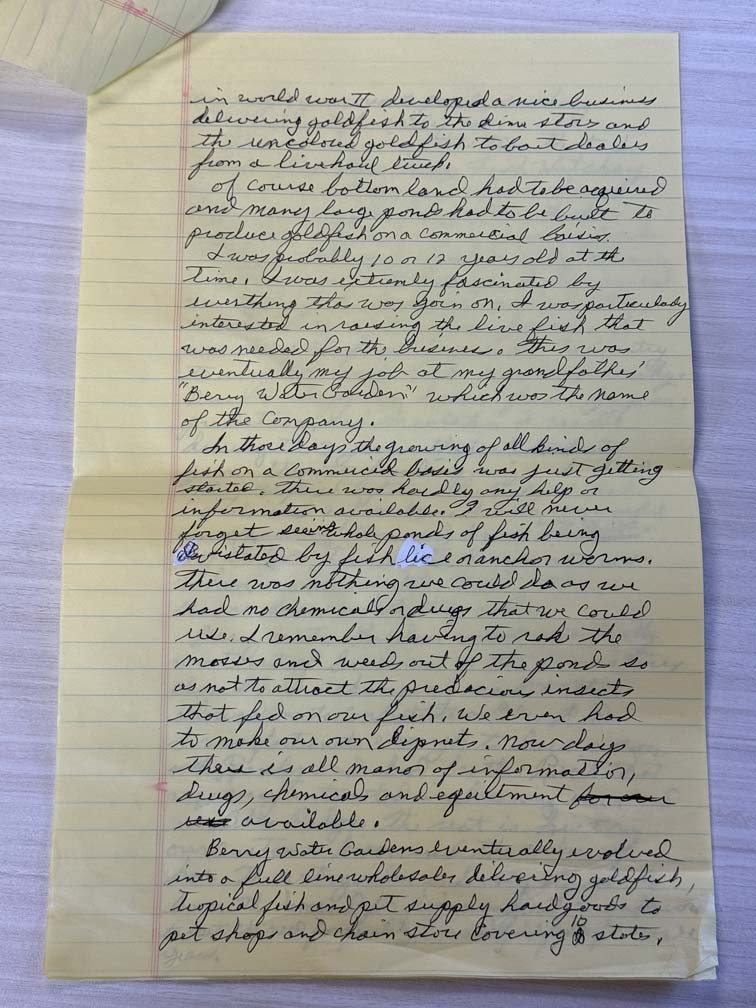 in world war II developed a nice business
delivering goldfish to the dime stors and
the uncolored goldfish to bait dealers
from a livehaul truck.
Of course bottom land had to be acquired
and many large ponds had to be built to
produce goldfish on a commercial basis.
I was probably 10 or 12 years old at th
time. I was extremly fascinated by
everthing that was goin on. I was particulady
interested in raising the live fish that
was needed for th business. This was
eventually my job at my grandfathes'
"Berry Water Gardens" which was the name
of the Company.
In those days the growing of all kinds of
fish on a commercial basis was just getting
started. There was hardly any help or
information available. I will never
forget seeing whole ponds of fish being
devistated by fish lice or anchor worms.
There was nothing we could do as we
had no chemicals or drugs that we could
use. I remember having to rak the
mosses and weeds out of the ponds so
as not to attract the predacious insects
that fed on our fish. We even had
to make our own dipnets. Now days
there is all manor of information,
drugs, chemicals and equitment for our
use available.
Berry Water Gardens eventually evolved
into a full line wholesaler delivering goldfish,
tropical fish and pet supply hardgoods to
pet shops and chain store covering 10 states.